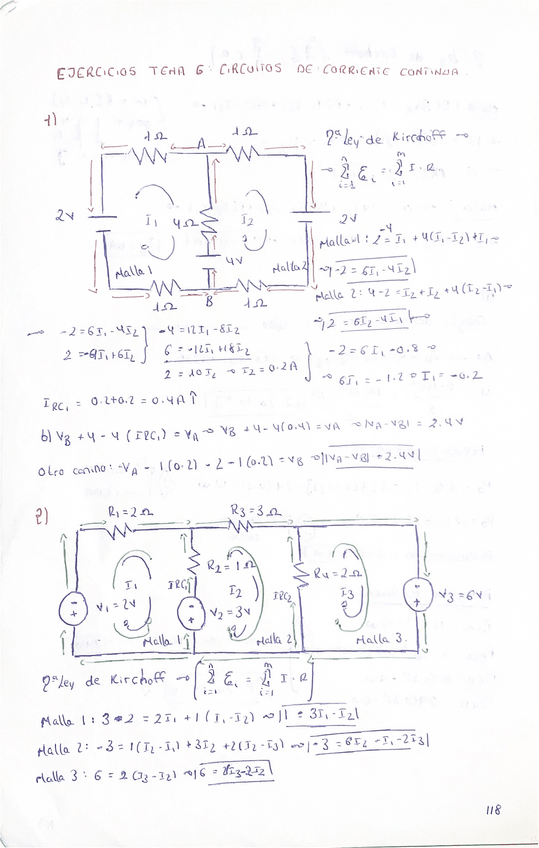 EJERCICIOS TEMA 6: CIRCUITOS DE CORRIENTE CONTINUA.
1)
1Ω A 1Ω
2ª Ley de Kirchoff →
→ Σ εi = Σ I · R
i=1 i=1
n m
2V I1 4Ω I2 2V
4V
Malla 1 Malla 2
1Ω B 1Ω
Malla 1: 2-4 = I1 + 4(I1-I2) + I1 →
→ -2 = 6I1 - 4I2
Malla 2: 4-2 = I2 + I2 + 4(I2-I1) →
→ 2 = 6I2 - 4I1
→ -2 = 6I1 - 4I2 } -4 = 12I1 - 8I2
2 = -4I1 + 6I2 } 6 = -12I1 + 18I2
2 = 10I2 → I2 = 0.2A
-2 = 6I1 - 0.8 →
→ 6I1 = -1.2 → I1 = -0.2
IRC1 = 0.2+0.2 = 0.4A ↑
b) VB + 4 - 4(IRC1) = VA → VB + 4 - 4(0.4) = VA → |VA-VB| = 2.4V
Otro camino: -VA - 1(0.2) - 2 - 1(0.2) = VB → |VA-VB| = 2.4V
2)
R1 = 2Ω R3 = 3Ω
R2 = 1Ω R4 = 2Ω
I1 IRC1 I2 IRC2 I3
V1 = 2V V2 = 3V V3 = 6V
Malla 1 Malla 2 Malla 3.
2ª Ley de Kirchoff → Σ εi = Σ I · R
Malla 1: 3-2 = 2I1 + 1(I1-I2) → 1 = 3I1 - I2
Malla 2: -3 = 1(I2-I1) + 3I2 + 2(I2-I3) → -3 = 6I2 - I1 - 2I3
Malla 3: 6 = 2(I3-I2) → 6 = 2I3 - 2I2
118